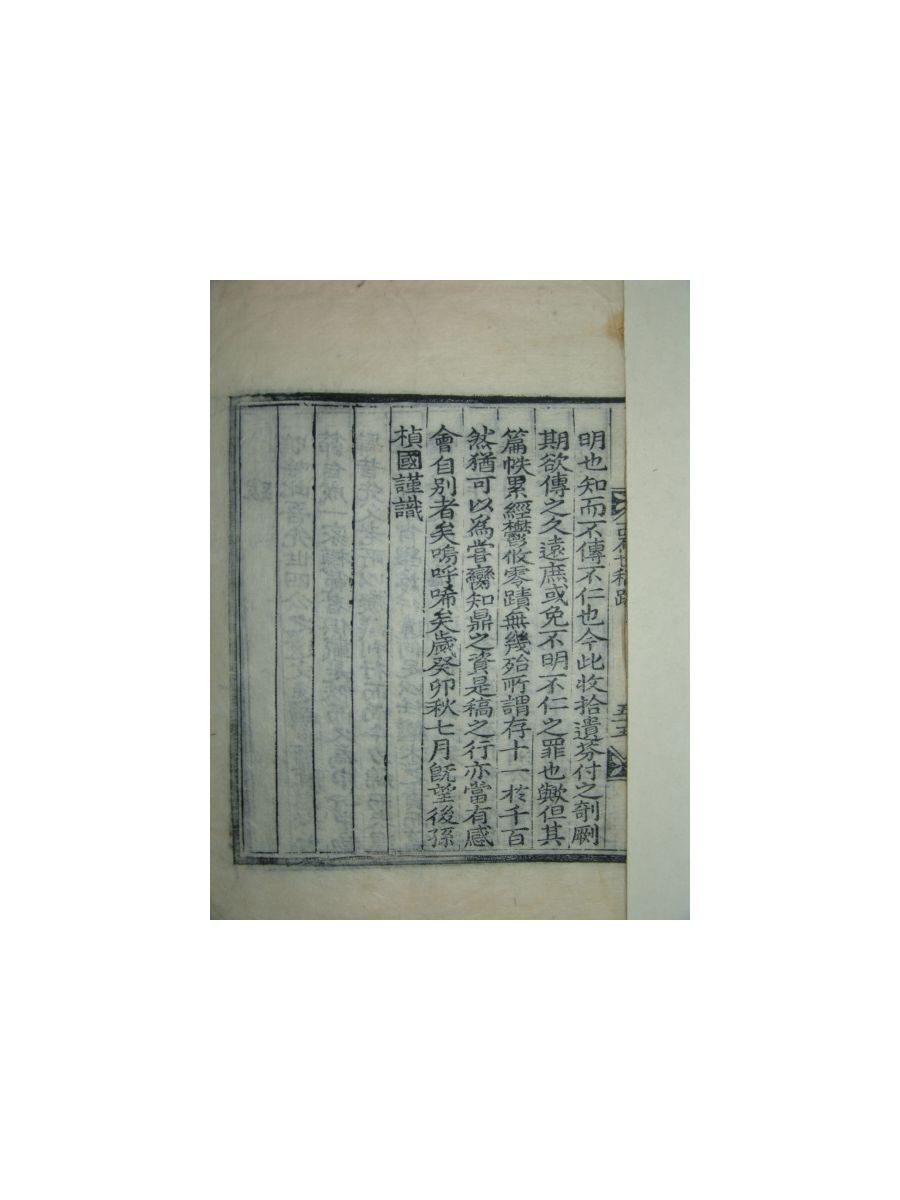 明也知而不傳不仁也今此收拾遺芬付之剞劂
期欲傳之久遠庶或免不明不仁之罪也歟但其
篇帙累經鬱攸零蹟無幾殆所謂存十一於千百
然猶可以為嘗臠知鼎之資是稿之行亦當有感
會自別者矣嗚呼唏矣歲癸卯秋七月旣望後孫
楨國謹識